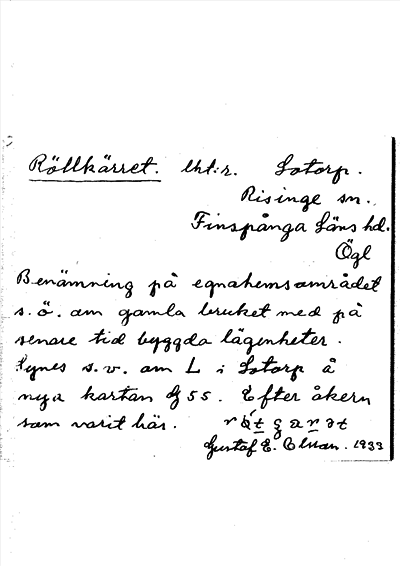 Röllkärret. lht:r. Lotorp.
Risinge sn.
Finspånga Läns hd.
Ögl
Benämning på egnahemsområdet
s. ö. om gamla bruket med på
senare tid byggda lägenheter.
Synes s. v. om L i Lotorp å
nya kartan 55. Efter åkern
som varit här.
Gustaf E. 1933